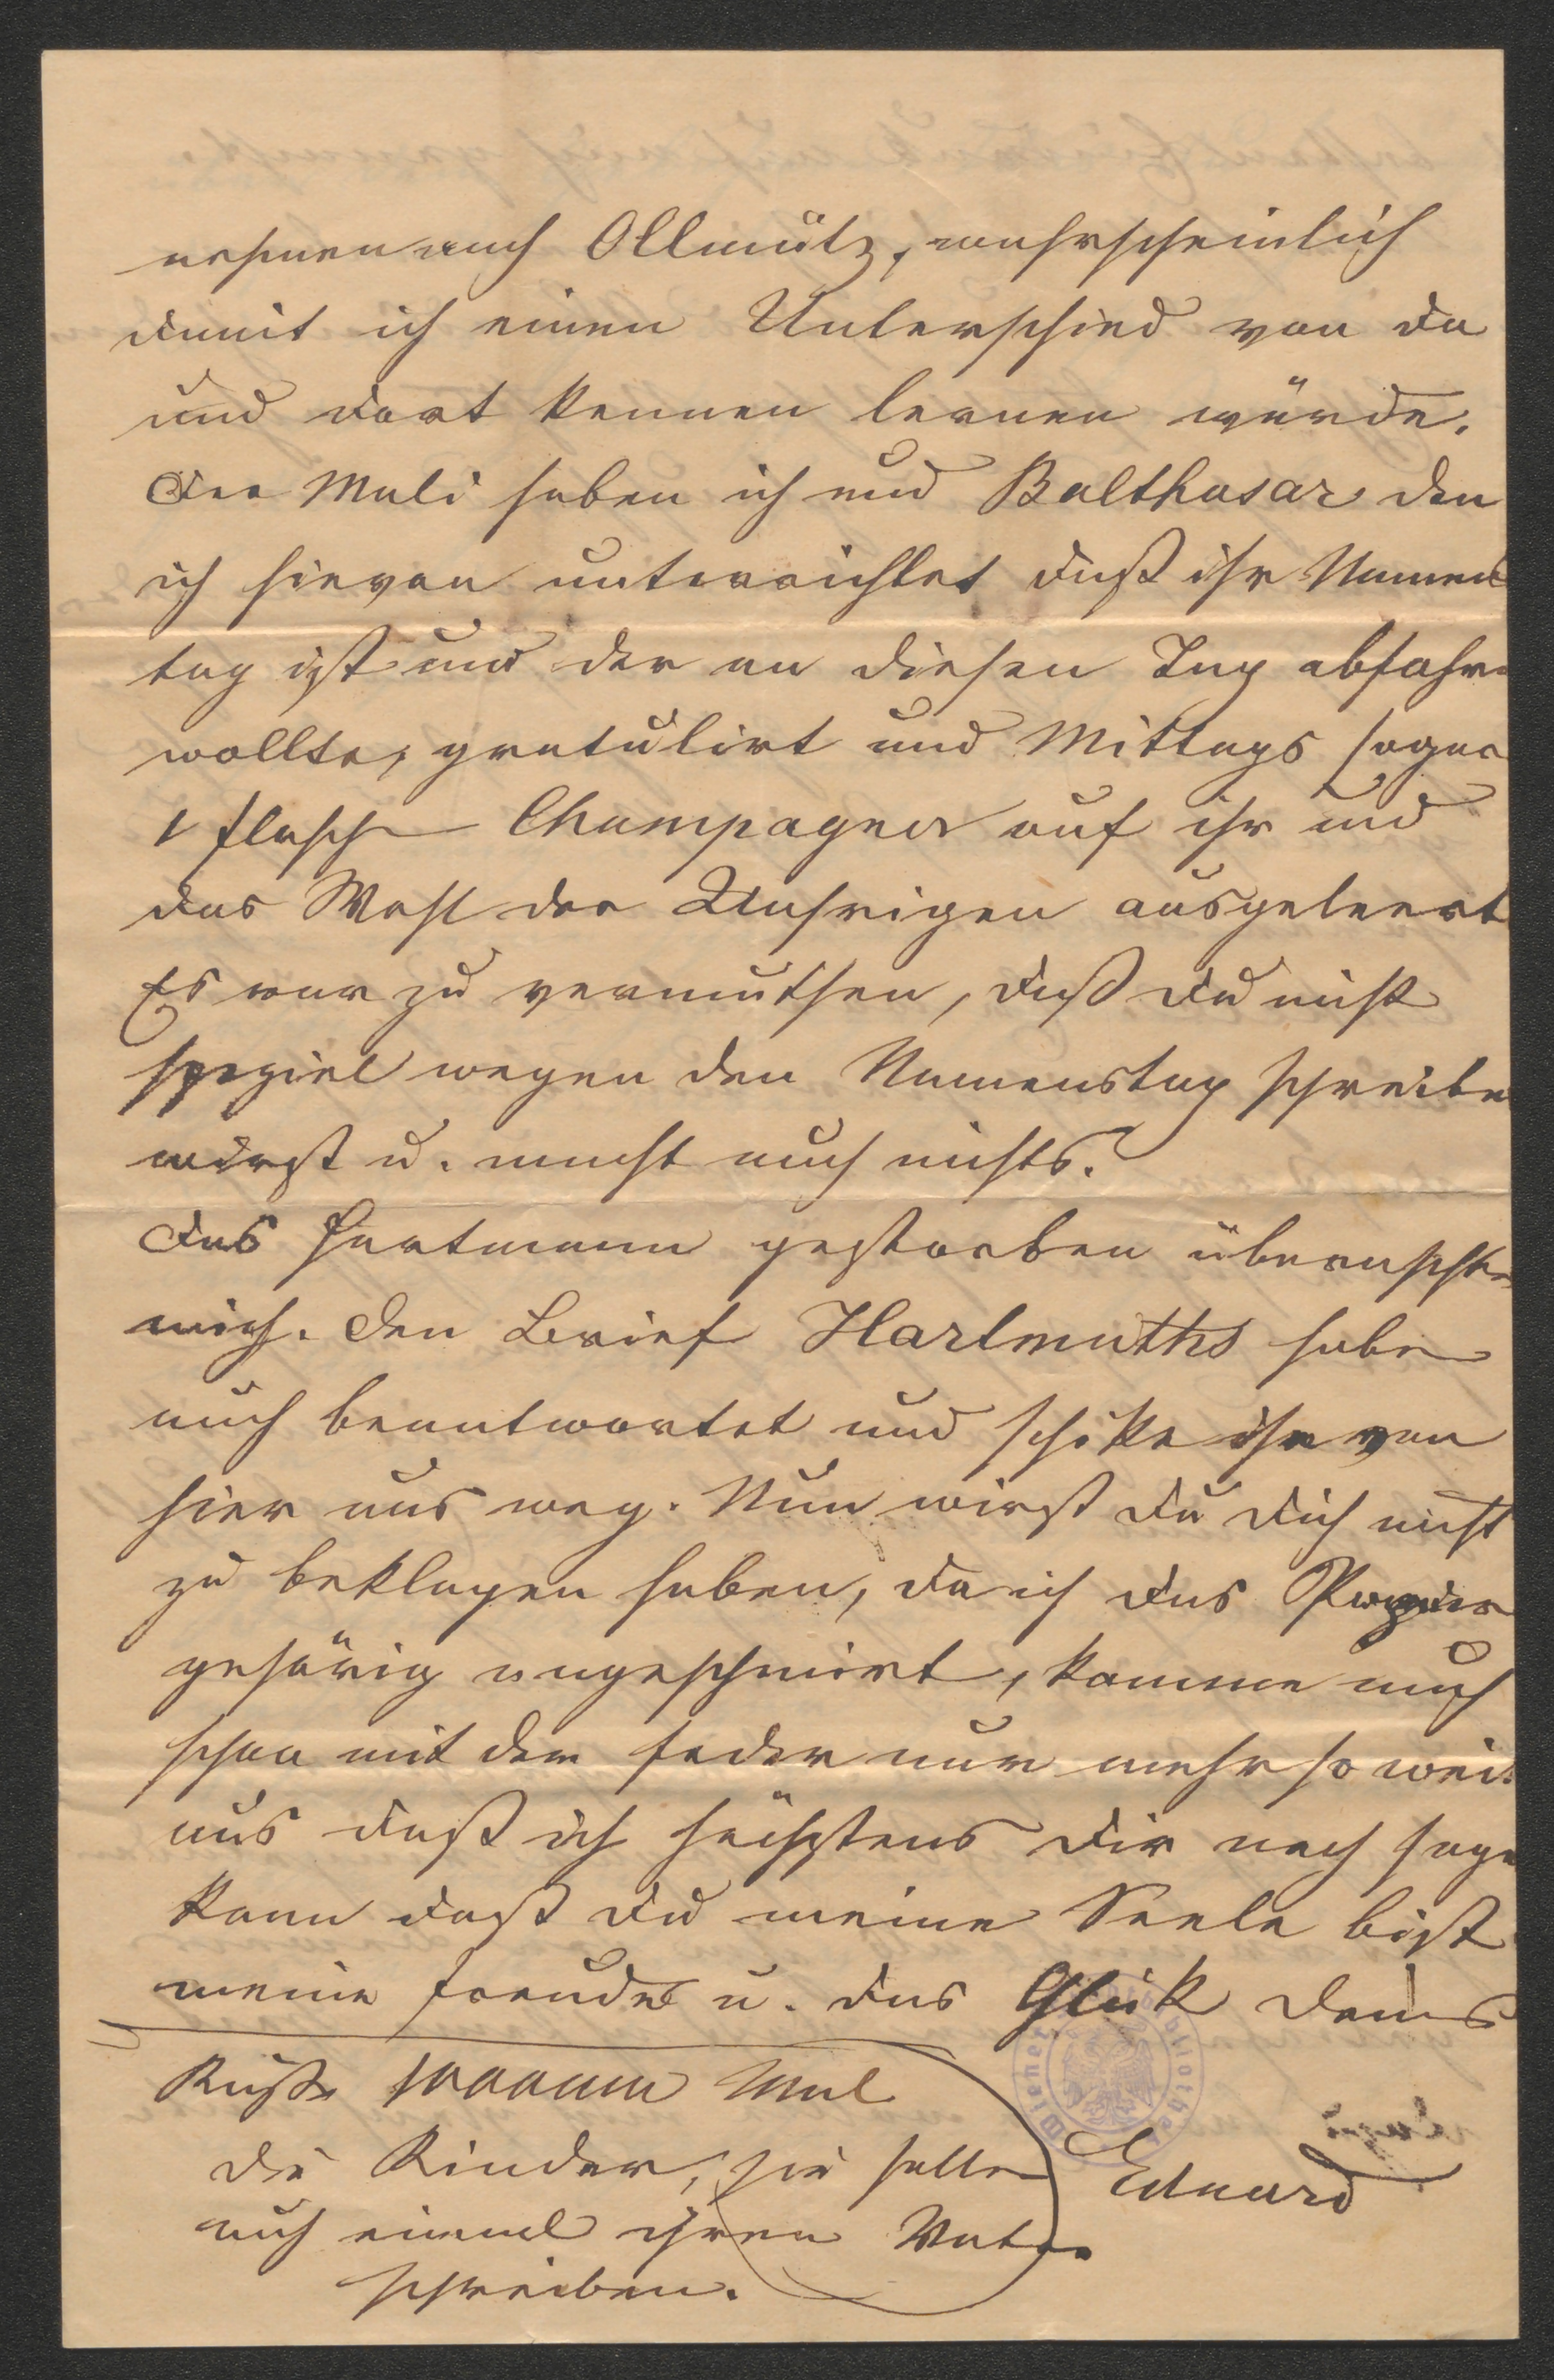 nehmen nach Ollmütz, wahrscheinlich
damit ich einen Unterschied von da
und dort kennen lernen würde.
Der Mali haben ich und Balthasar den
ich hievon unterrichtet daß ihr Namens
tag ist und der an diesen Tag abfahren
wollte, gratulirt und Mittags sogar
1 Flasche Champagner auf ihr und
das Wohl der Unsrigen ausgeleert
Es war zu vermuthen, daß du nicht
speziel wegen den Namenstag schreiben
wirst u. macht auch nichts.
Das Hartmann gestorben überraschte
mich. Den Brief Hartmuths habe
auch beantwortet und schike ihn von
hier aus weg. Nun wirst du dich nicht
zu beklagen haben, da ich das Papier
gehörig angeschmirt, komme auch
schon mit der Feder nur mehr so weit
aus daß ich höchstens dir noch sagen
kann daß du meine Seele bist
meine Freude u. das Glük deines
Eduard
Küße 1000000 Mal
die Kinder, sie sollen
auch einmal ihren Vater
schreiben.